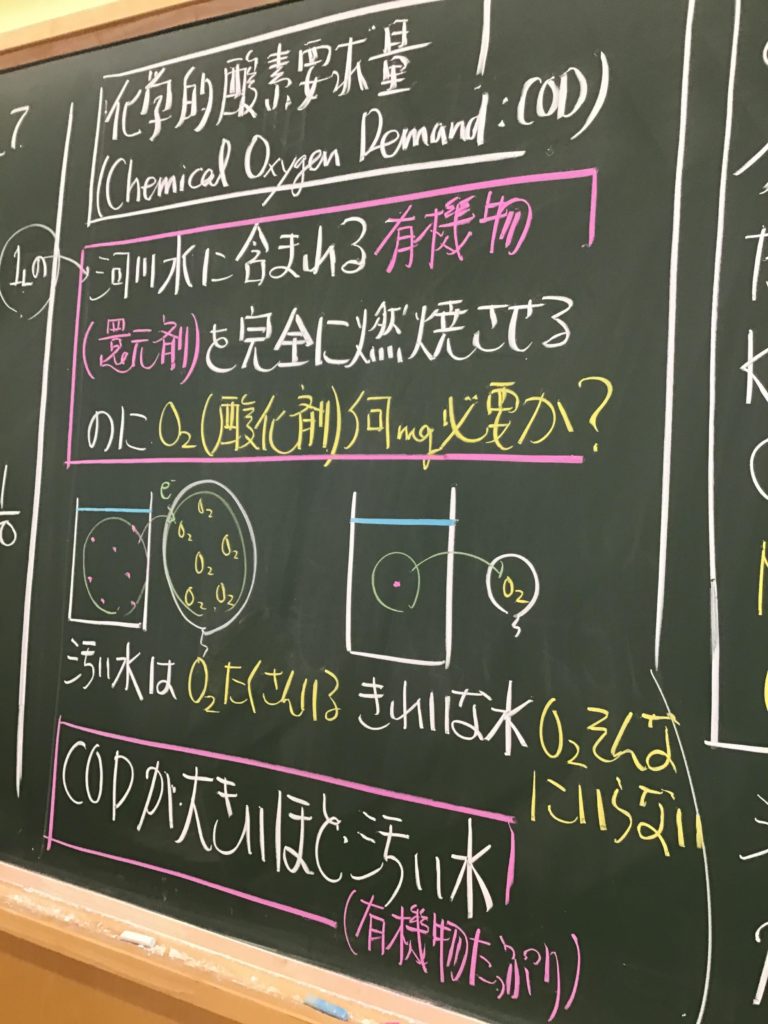 化学的酸素要求量
(Chemical Oxygen Demand : COD)
1Lの
河川水に含まれる有機物
(還元剤)を完全に燃焼させる
のにO₂(酸化剤)何mg必要か?
e⁻
O₂
O₂ O₂
O₂
O₂ O₂
O₂
汚い水は O₂たくさんいる
きれいな水 O₂そんな
にいらない
CODが大きいほど汚い水
(有機物たっぷり)